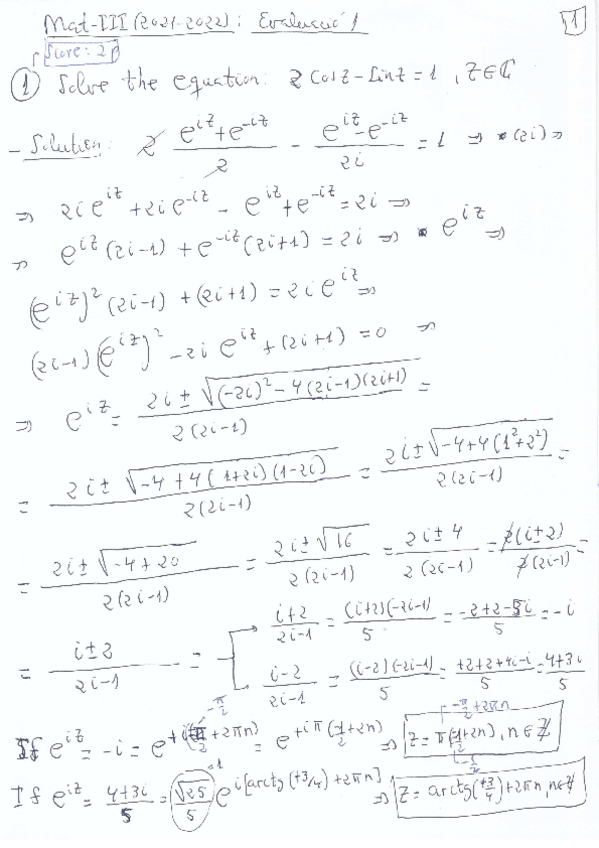 Mat-III (2021-2022): Evaluació 1
1
Score: 2p
① Solve the equation: 2 Cos z - Sin z = 1, z ∈ ℂ
- Solution: 2 (e^{iz} + e^{-iz})/2 - (e^{iz} - e^{-iz})/2i = 1 ⇒ *(2i) ⇒
⇒ 2i e^{iz} + 2i e^{-iz} - e^{iz} + e^{-iz} = 2i ⇒
⇒ e^{iz} (2i-1) + e^{-iz} (2i+1) = 2i ⇒ * e^{iz} ⇒
(e^{iz})^2 (2i-1) + (2i+1) = 2i e^{iz} ⇒
(2i-1) (e^{iz})^2 - 2i e^{iz} + (2i+1) = 0 ⇒
⇒ e^{iz} = (2i ± √((-2i)^2 - 4(2i-1)(2i+1)))/(2(2i-1)) =
= (2i ± √(-4 + 4(1+2i)(1-2i)))/(2(2i-1)) = (2i ± √(-4+4(1^2+2^2)))/(2(2i-1)) =
= (2i ± √(-4+20))/(2(2i-1)) = (2i ± √16)/(2(2i-1)) = (2i ± 4)/(2(2i-1)) = (2(i±2))/(2(2i-1)) =
= (i±2)/(2i-1) =
(i+2)/(2i-1) = ((i+2)(-2i-1))/5 = (-2+2-5i)/5 = -i
(i-2)/(2i-1) = ((i-2)(-2i-1))/5 = (+2+2+4i-i)/5 = (4+3i)/5
If e^{iz} = -i = e^{+i(-π/2 + 2πn)} = e^{+iπ(-1/2 + 2n)} ⇒ z = π(-1/2 + 2n), n ∈ ℤ
-π/2 + 2πn
If e^{iz} = (4+3i)/5 = √25/5 e^{i[arctg(+3/4) + 2πn]} ⇒ z = arctg(+3/4) + 2πn, n ∈ ℤ
= 1